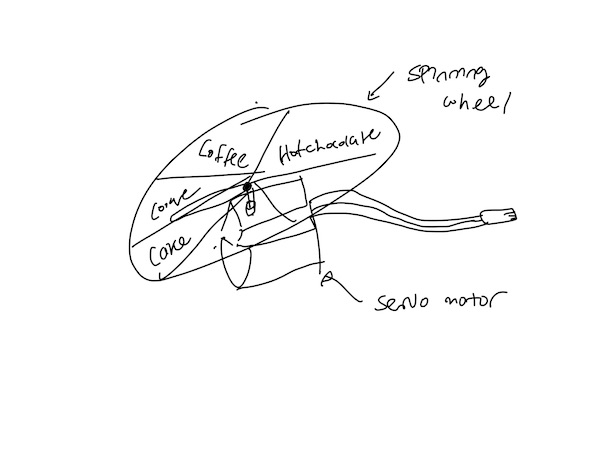 spinning
wheel
Coffee
Hotchocolate
Cake
servo motor